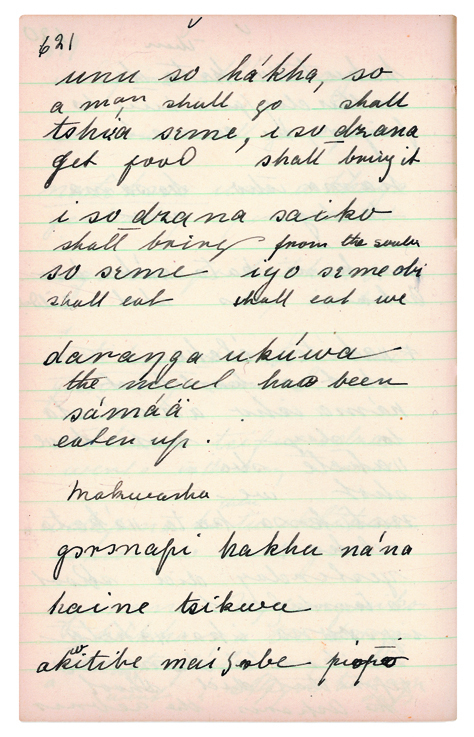 621
unu so hákha, so
a man shall go shall
tshwá seme, i so dzana
get food shall bring it
i so dzana saiko
shall bring from the
so seme igo seme di
shall eat shall eat we
daranga ukúwa
the meal has been
sámáä
eaten up.
Makuvasha
gorsnapi kakhu nána
kaine tsikwu
akitibe mai